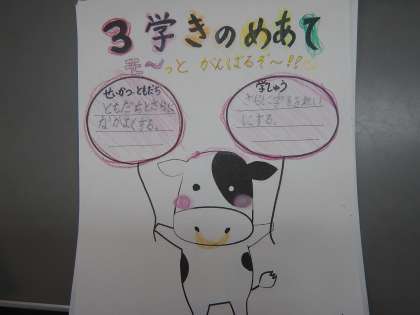 3学きのめあて
モ〜っと がんばるぞ〜!!
せいかつ・ともだち
ともだちとさらに
なかよくする。
学しゅう
さらに字をきれい
にする。